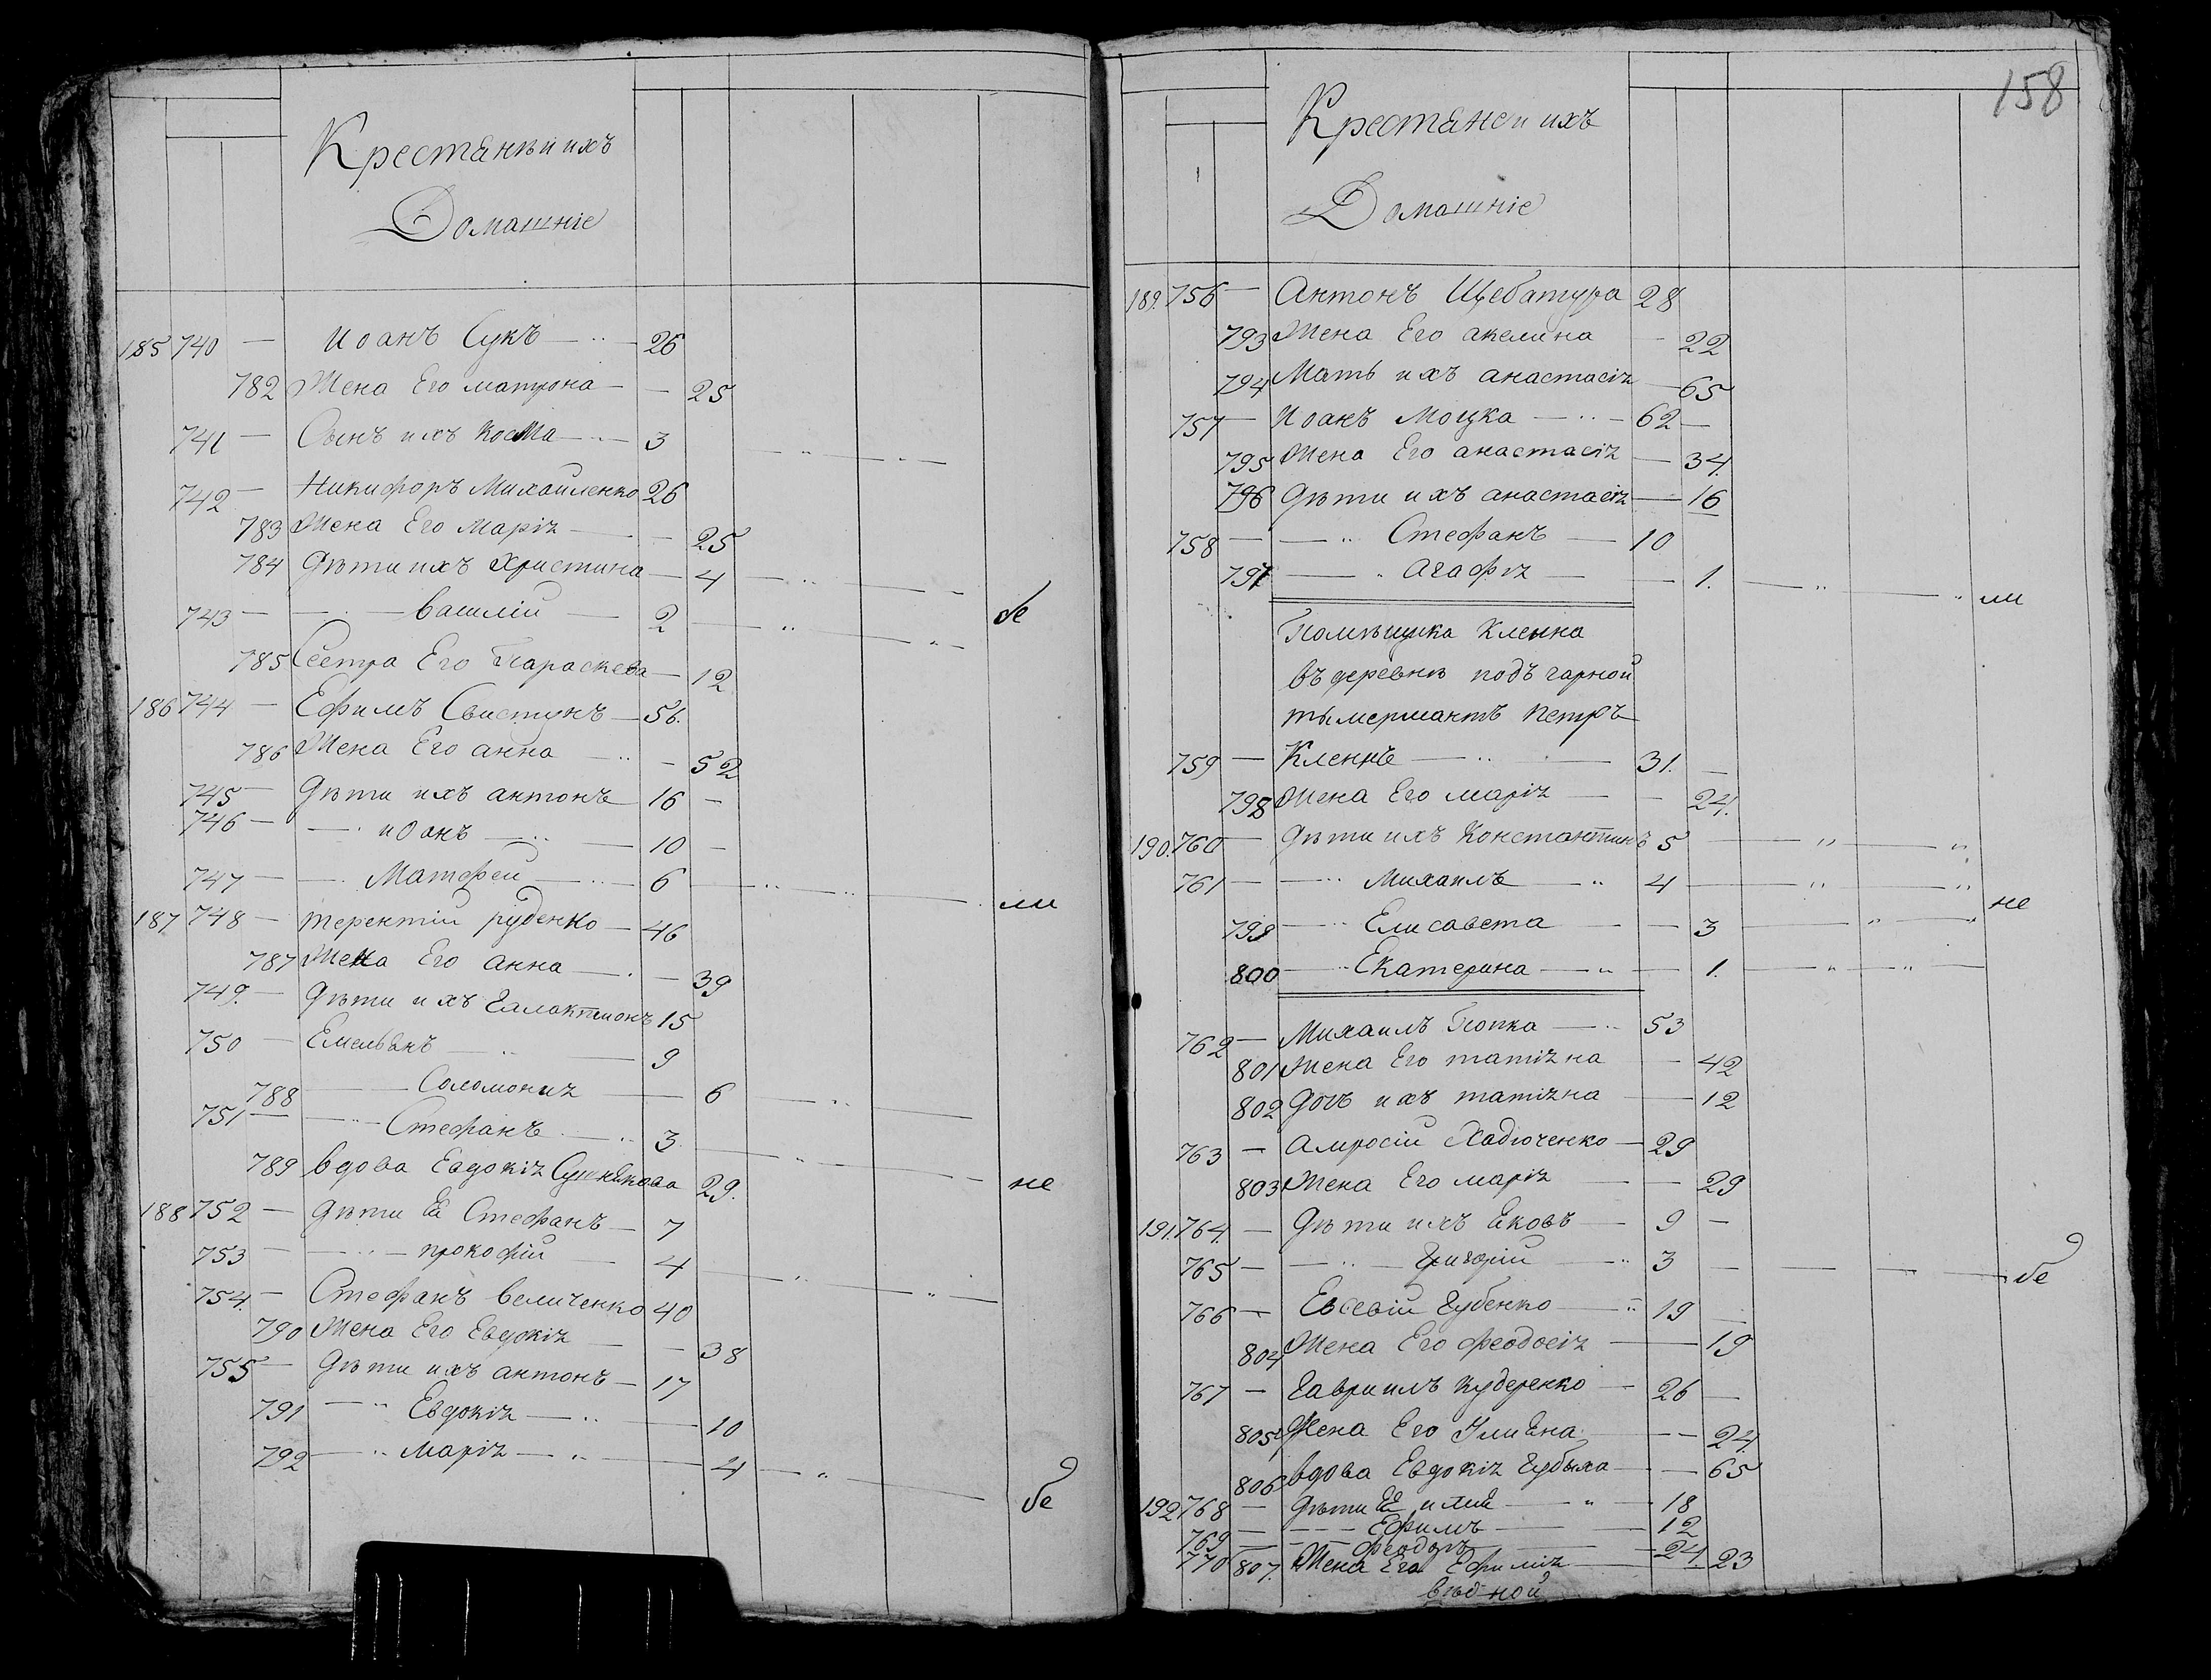 Крестѧнѣ и ихъ
Домашніе
185 740 — Иоанъ Сукъ — 26
782 Жена Его матрона — 25
741 — Сынъ ихъ Косма — 3
742 — Никифоръ Михайленко 26
783 Жена Его Маріѧ — 25
784 Дѣти ихъ Христина — 4
743 — василій — 2
785 Сестра Его Параскева — 12
186 744 — Ефимъ Свистунъ — 56.
786 Жена Его анна — 52
745 — Дѣти ихъ антонъ 16 —
746 — иоанъ — 10 —
747 — Матфей — 6
ли
187 748 — терентій руденко — 46
787 Жена Его анна — 39
749. — Дѣти ихъ Галактионъ 15
750 — Емельѧнъ — 9
788 — Соломониѧ — 6
751 — Стефанъ — 3
789 вдова Евдокіѧ 29.
не
188 752 — Дѣти Еѧ Стефанъ — 7
753 — прокофій — 4
754. — Стефанъ величенко 40
790 Жена Его Евдокіѧ — 38
755 — Дѣти ихъ антонъ — 17
791 — Евдокіѧ — 10
792 — маріѧ — 4
бе
158
Крестѧне и ихъ
Домашніе
189. 756 — Антонъ Щебатура 28
793 Жена Его акелина — 22
794 Мать ихъ анастасіѧ — 65
757 — Иоанъ Моцка — 62 —
795 Жена Его анастасіѧ — 34.
796 Дѣти ихъ анастасіѧ — 16
758 — Стефанъ — 10
797 — Агафіѧ — 1.
ли
Помѣщика Клеина
въ деревнѣ подъ гарной
Петръ
759 — 31. —
798 Жена Его маріѧ — 24.
190. 760 — Дѣти ихъ Константинъ 5
761 — Михаилъ — 4
не
799 — Елисавета — 3
800 — Екатерина — 1.
762 — Михаилъ Попка — 53
801 Жена Его татіѧна — 42
802 Дочь ихъ татіѧна — 12
763 — Амросій Хадюченко — 29
803 Жена Его маріѧ — 29
191. 764. — Дѣти ихъ Ѧковъ — 9 —
765 — Григорій — 3
бе
766 — Евсевій Губенко — 19
804 Жена Его феодосіѧ — 19
767 — Гавриилъ Кудеренко — 26 —
805 Жена Его Улиѧна — 24.
806 вдова Евдокіѧ Губыха — 65
192 768 — Дѣти Еѧ илиѧ — 18
769 — Ефимъ — 12
770 — феодоръ — 24.
807. Жена Его Ефиміѧ 23